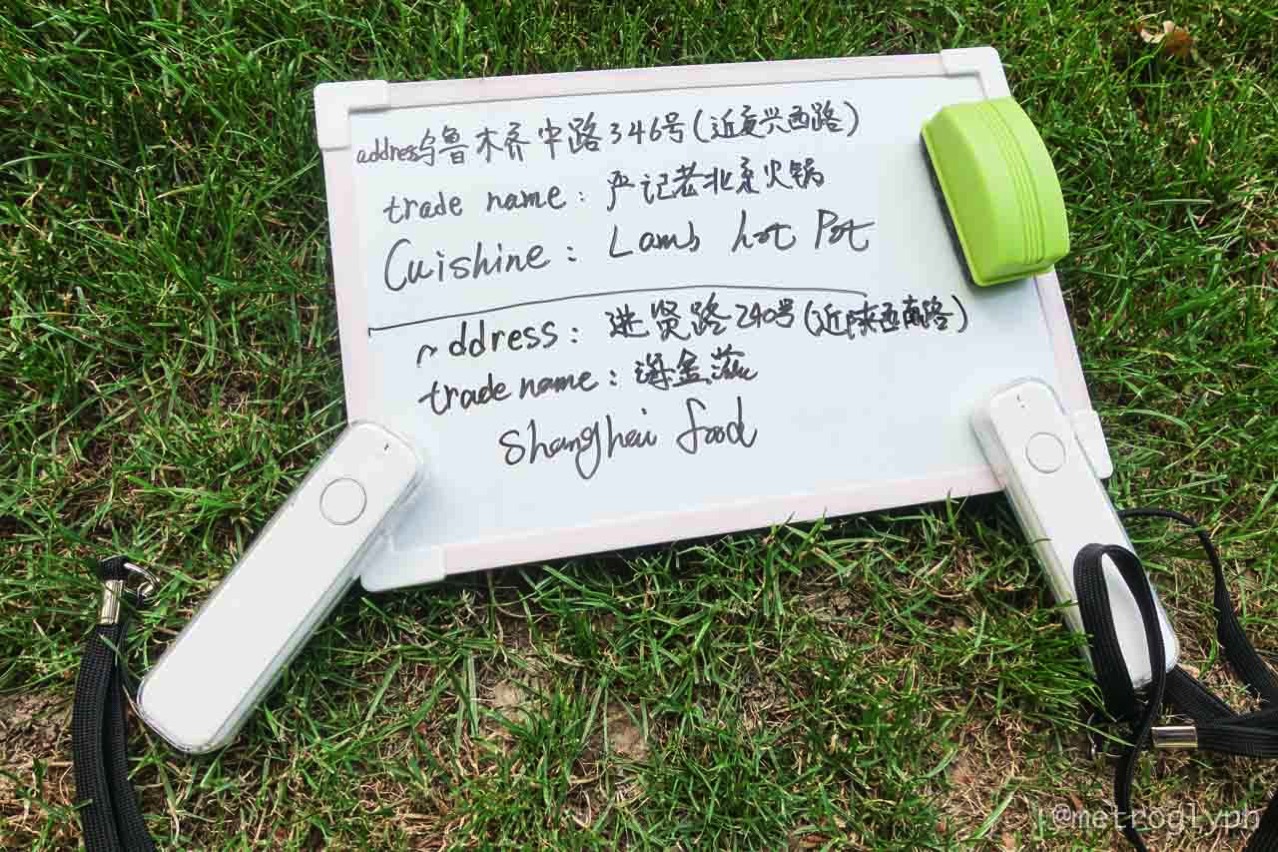 address乌鲁木齐中路346号(近复兴西路)
trade name: 严记老北京火锅
Cuishine: Lamb hot Pot
address: 进贤路240号(近陕西南路)
trade name: 海金滋
Shanghai food
@metroglyph